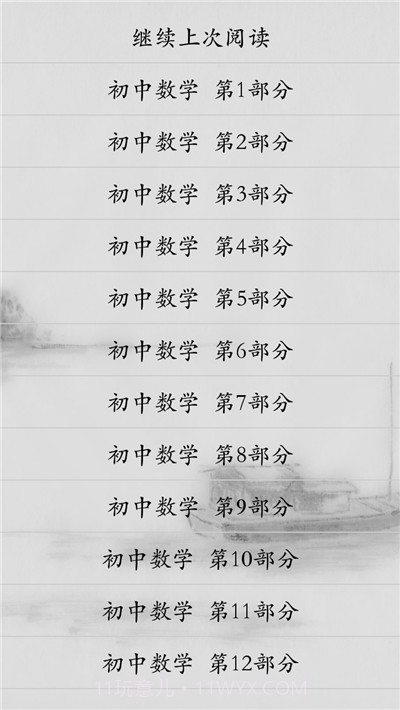 继续上次阅读
初中数学 第1部分
初中数学 第2部分
初中数学 第3部分
初中数学 第4部分
初中数学 第5部分
初中数学 第6部分
初中数学 第7部分
初中数学 第8部分
初中数学 第9部分
初中数学 第10部分
初中数学 第11部分
初中数学 第12部分
11玩意儿·11WYX.COM